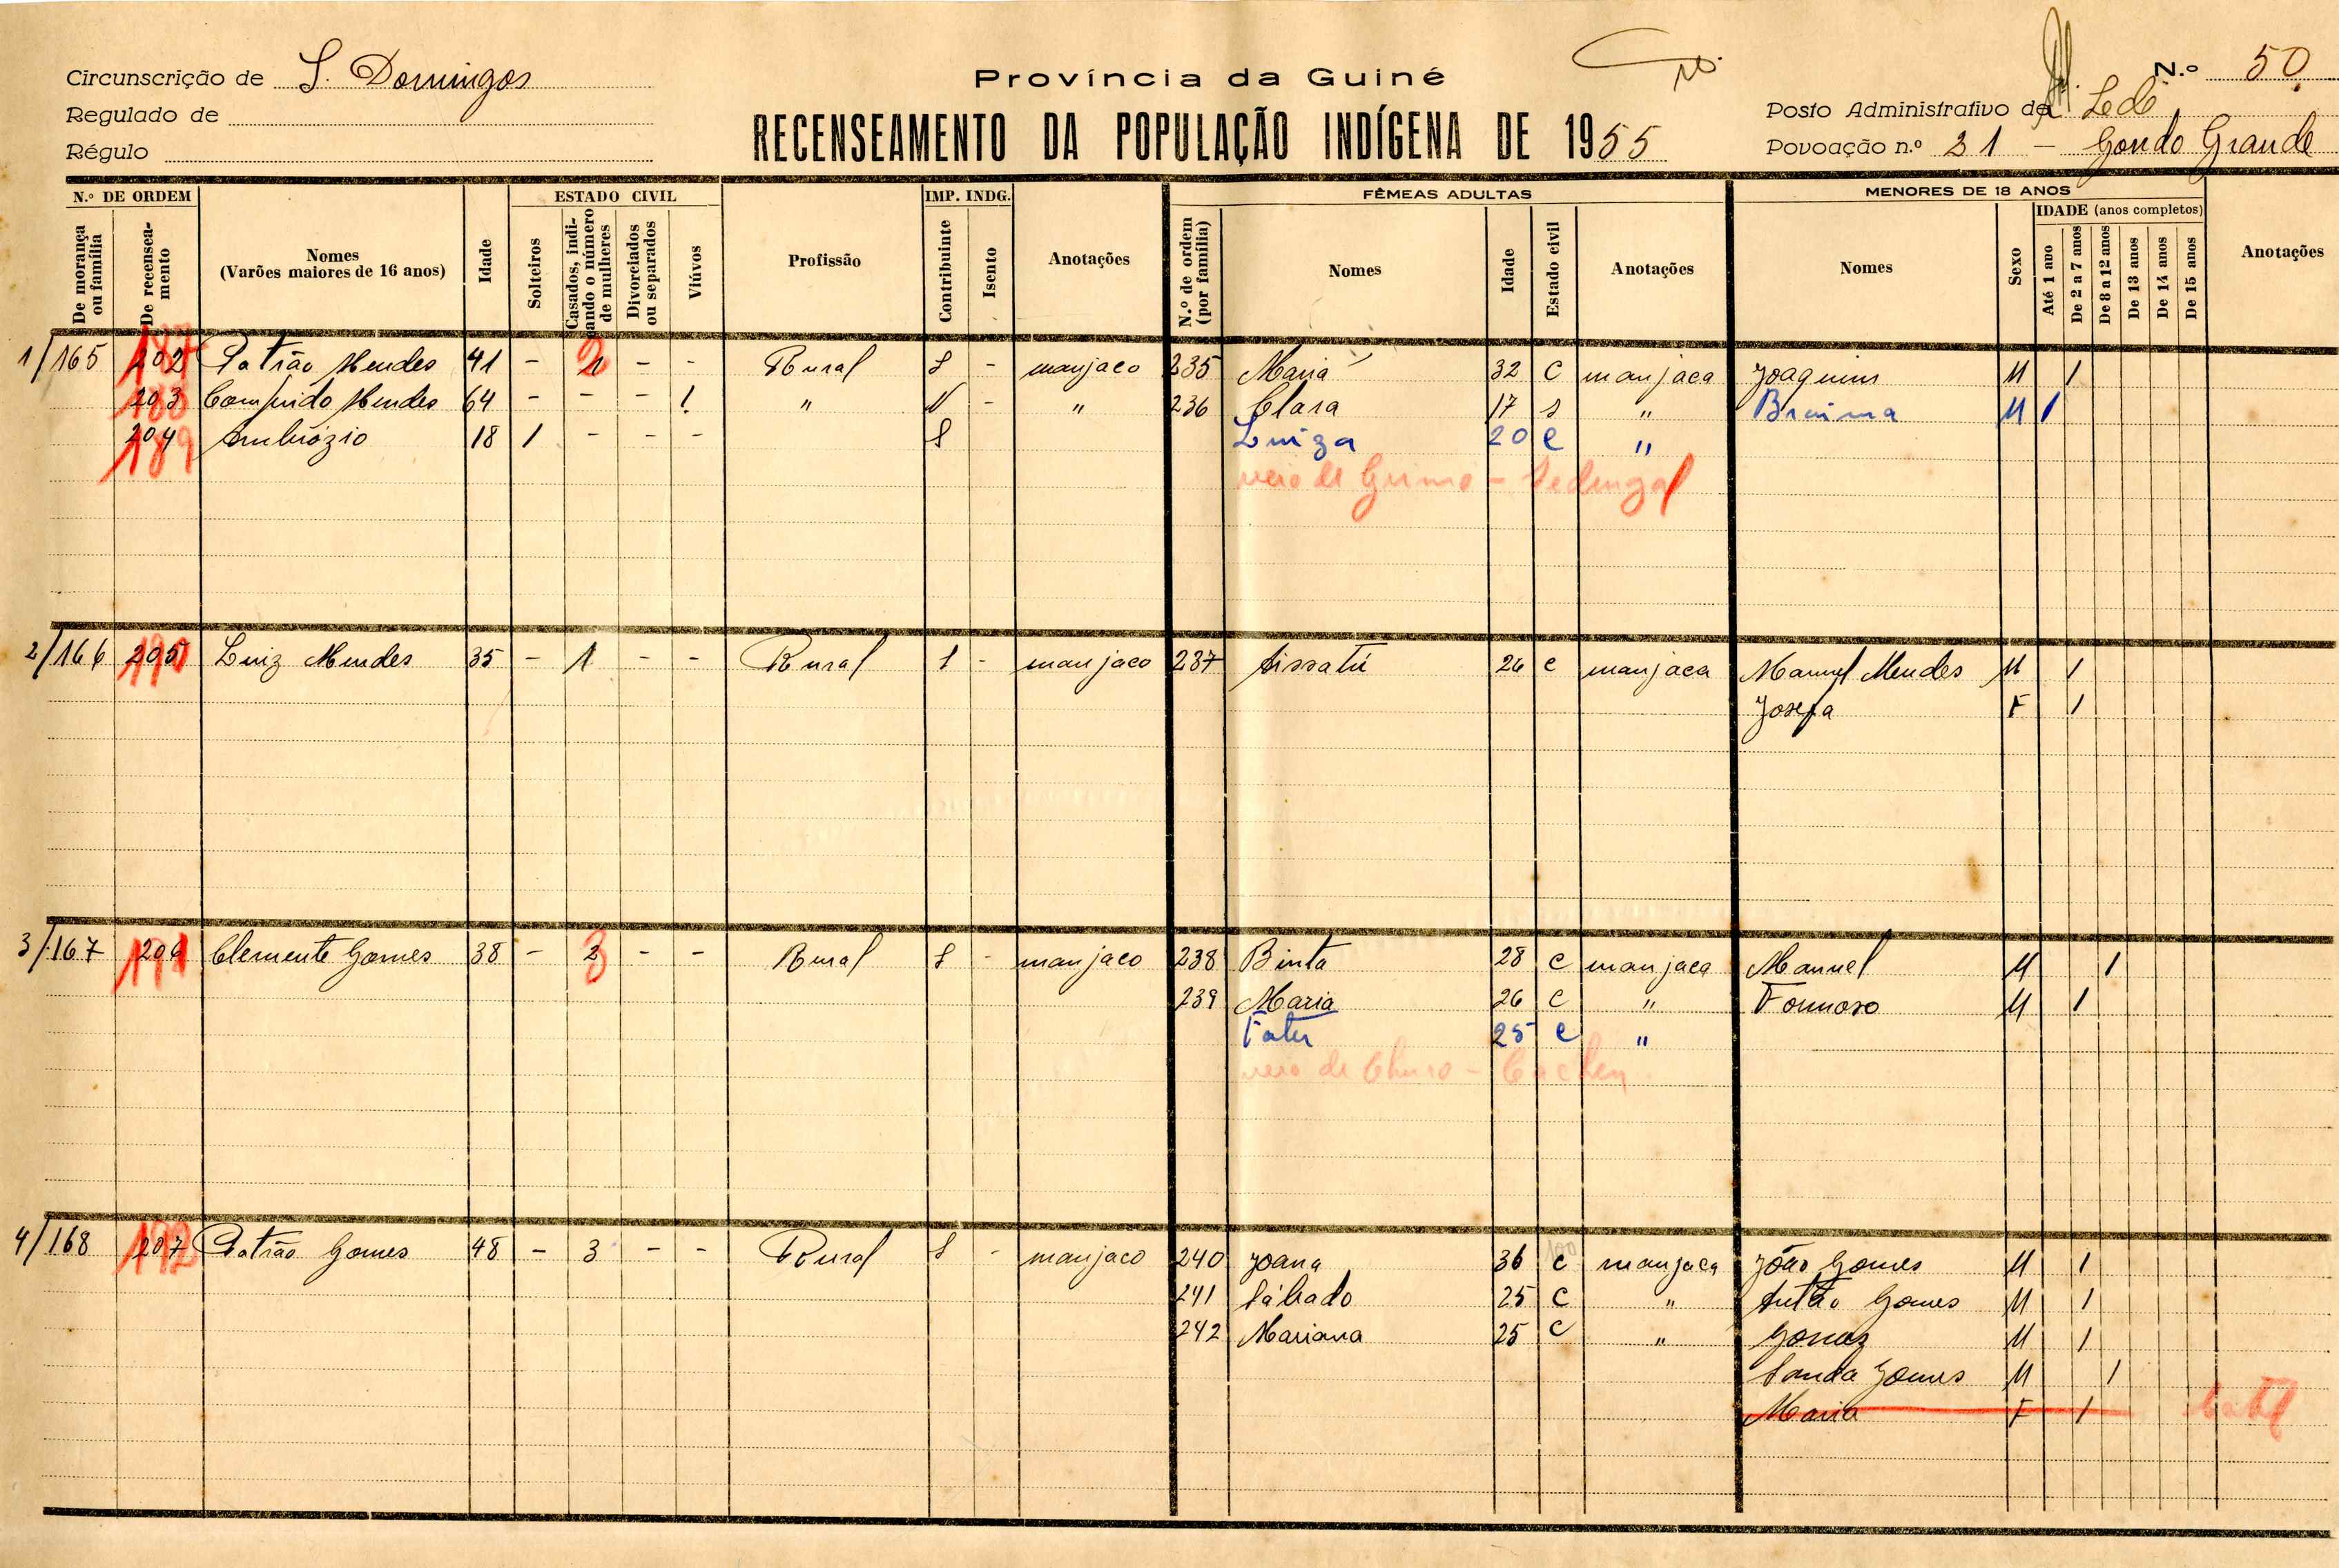 Circunscrição de S. Domingos
Regulado de
Régulo
Província da Guiné
RECENSEAMENTO DA POPULAÇÃO INDÍGENA DE 1955
N.º 50
Posto Administrativo de
Povoação n.º 21 - Gondo Grande
N.º DE ORDEM
De morança ou família
De recenseamento
Nomes
(Varões maiores de 16 anos)
Idade
ESTADO CIVIL
Solteiros
Casados, indicando o número de mulheres
Divorciados ou separados
Viúvos
Profissão
IMP. INDG.
Contribuinte
Isento
Anotações
FÊMEAS ADULTAS
N.º de ordem (por família)
Nomes
Idade
Estado civil
Anotações
MENORES DE 18 ANOS
Nomes
Sexo
IDADE (anos completos)
Até 1 ano
De 2 a 7 anos
De 8 a 12 anos
De 13 anos
De 14 anos
De 15 anos
Anotações
1/165 202 Patrão Mendes 41 - 2 - - Rural 1 - manjaco 235 Maria 32 C manjaca Joaquim M 1
203 188 Comprido Mendes 64 - - - 1 " - " 236 Clara 17 s " Braima M 1
204 189 Ambrózio 18 1 - - - 1 Luiza 20 C "
veio de - Sedengal
2/166 205 190 Luiz Mendes 35 - 1 - - Rural 1 - manjaco 237 Aissatú 26 C manjaca Manuel Mendes M 1
Josefa F 1
3/167 206 191 Clemente Gomes 38 - 3 - - Rural 1 - manjaco 238 Binta 28 C manjaca Manuel M 1
239 Maria 26 C " Formoso M 1
Fatu 25 C "
veio de Churo - Cacheu
4/168 207 192 Patrão Gomes 48 - 3 - - Rural 1 - manjaco 240 Joana 36 C manjaca João Gomes M 1
241 Sábado 25 C " Antão Gomes M 1
242 Mariana 25 C " Gomes M 1
Gomes M 1
Maria F 1